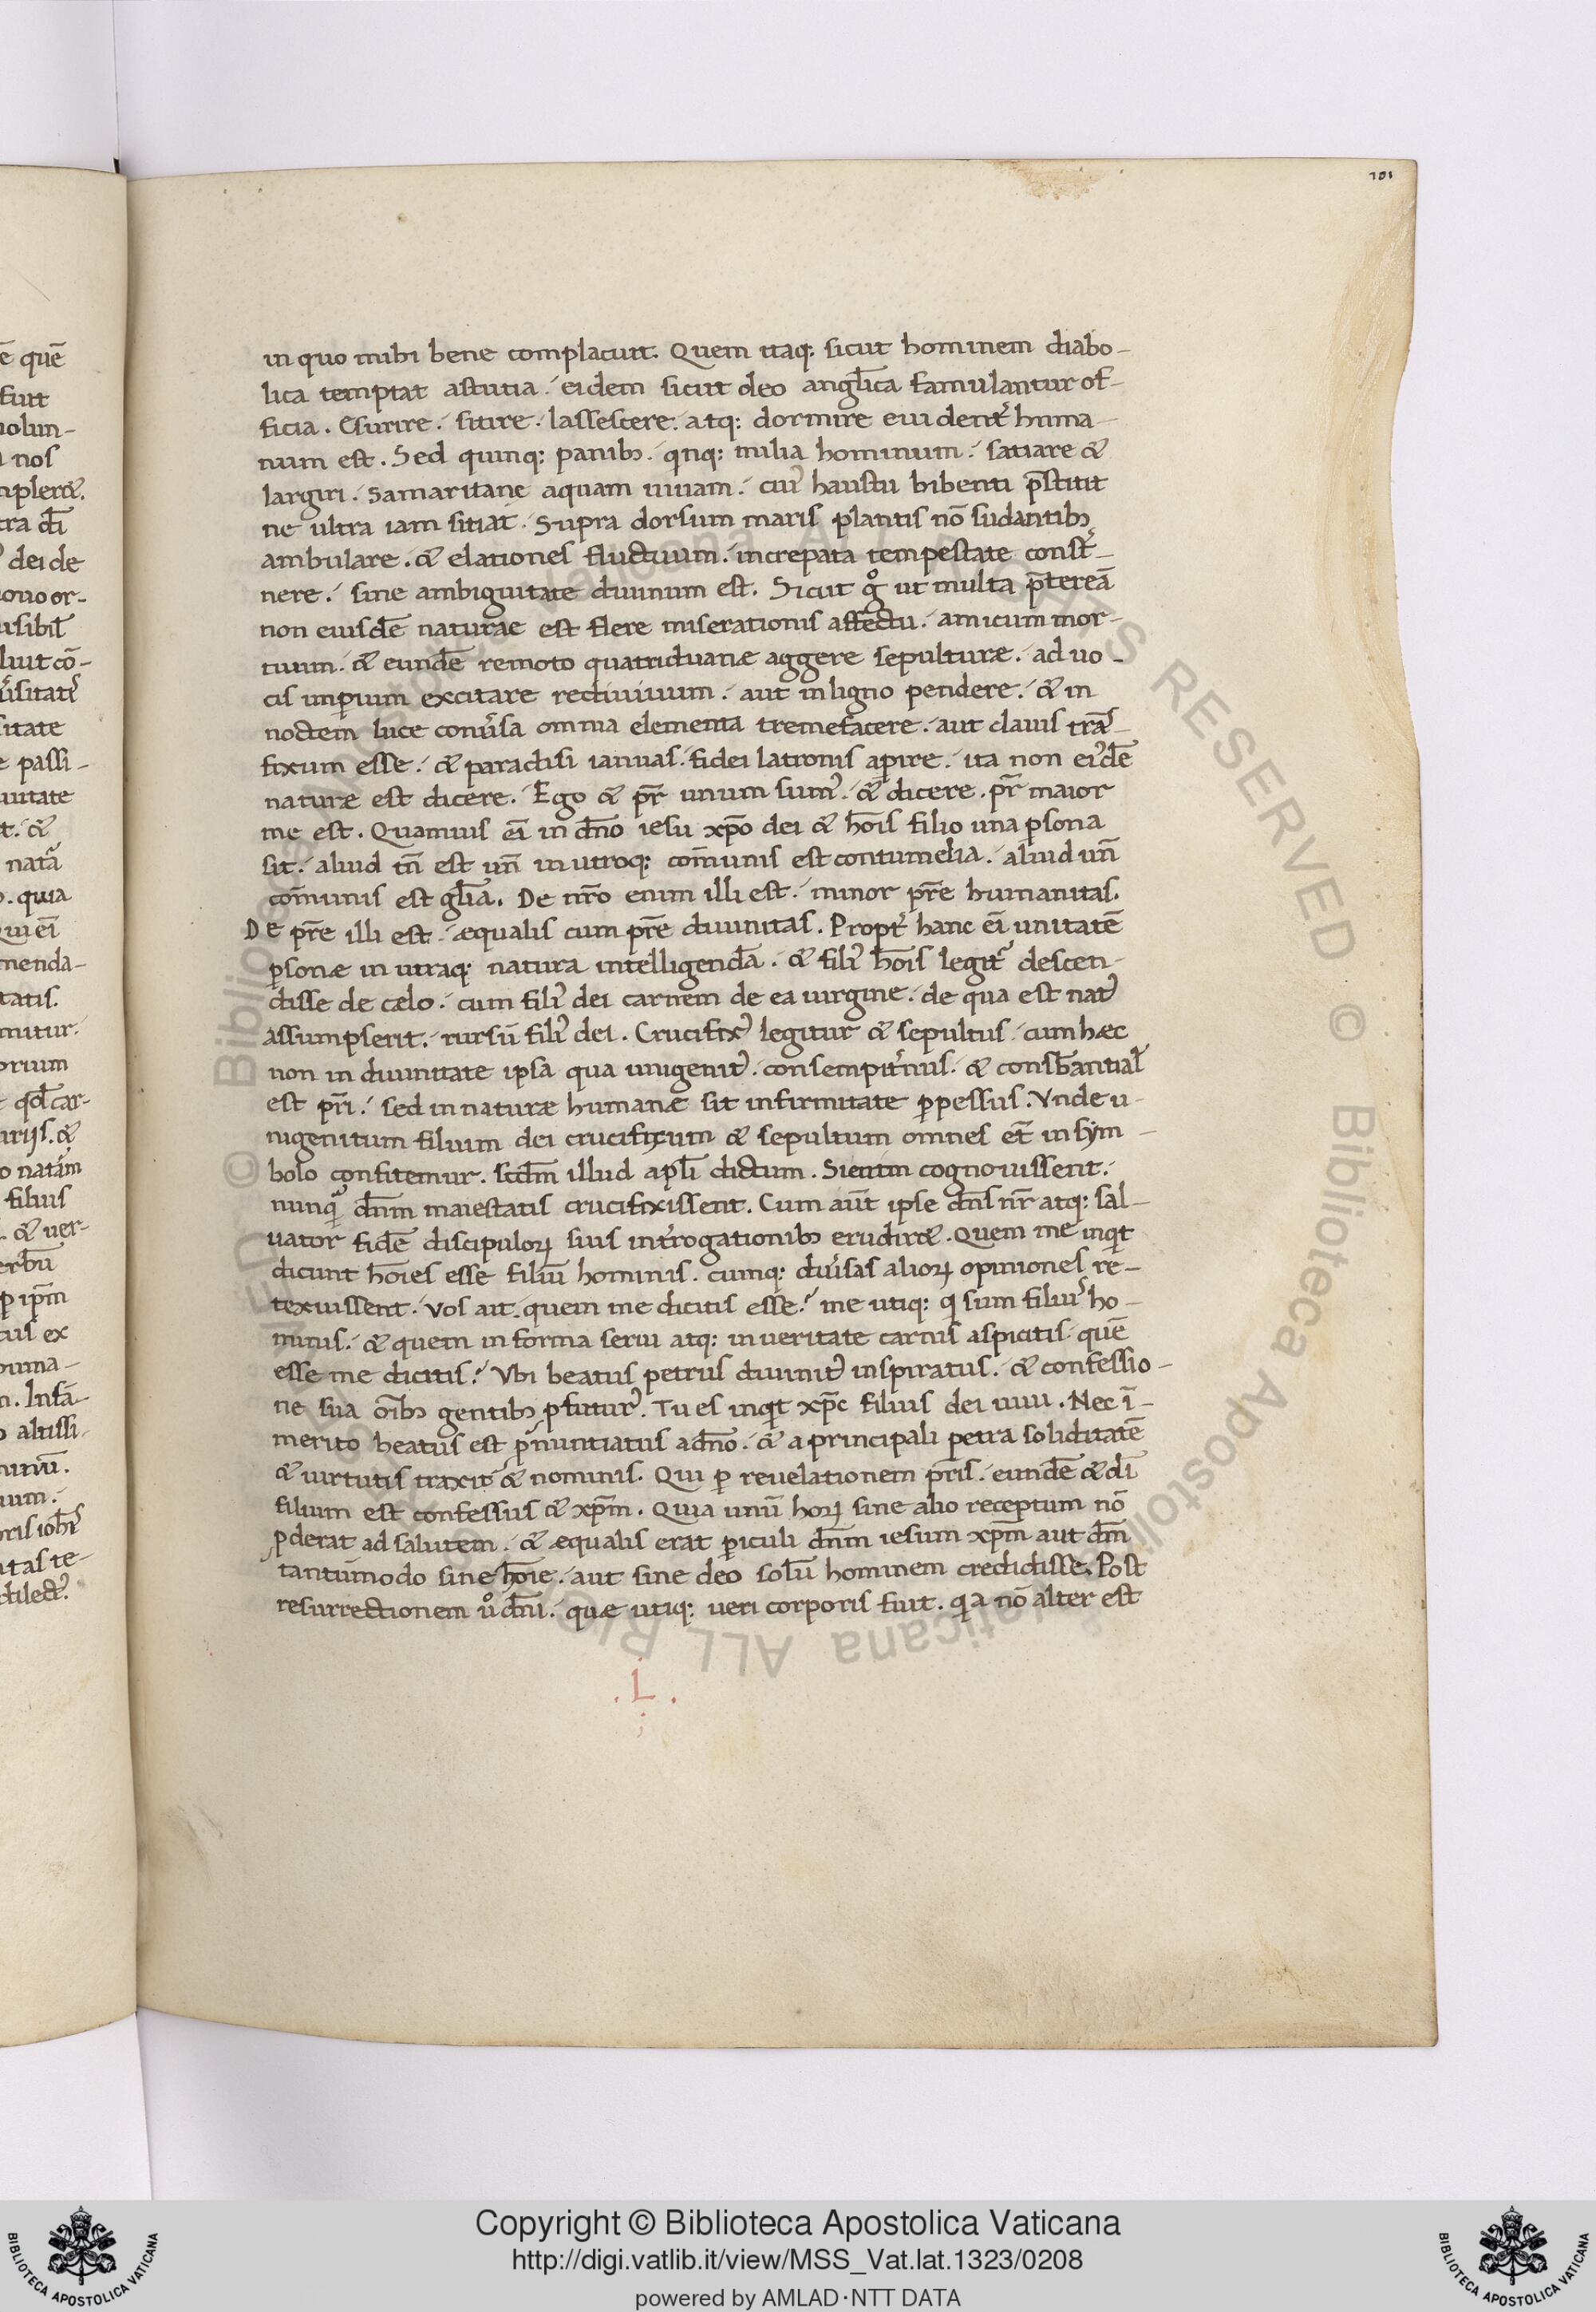 101
in quo mihi bene complacuit. Quem itaq; sicut hominem diabo-
lica temptat astutia. eidem sicut deo angl̅ica famulantur of-
ficia. Esurire. sitire. lassescere. atq; dormire euident̾ huma-
num est. Sed quinq; panib; qnq; milia hominum. satiare &
largiri. Samaritane aquam uiuam. cui᾽ haustu bibenti p̅stitit
ne ultra iam sitiat. Supra dorsum maris plantis nō sudantib;
ambulare. & elationes fluctuum. increpata tempestate const̾-
nere. sine ambiguitate diuinum est. Sicut g̊ ut multa p̅tereā
non eiusdē naturae est flere miserationis affectu. amicum mor-
tuum. & eundē remoto quatriduanæ aggere sepulturæ. ad uo-
cis imꝑium excitare rediuiuum. aut in ligno pendere. & in
noctem luce conu̾sa omnia elementa tremefacere. aut clauis trās-
fixum esse. & paradisi ianuas. fidei latronis aꝑire. ita non ei᾽dē
naturæ est dicere. Ego & pr̅ unum sum᾽. & dicere. pr̅ maior
me est. Quamuis ei̅ in dn̅o iesu xp̅o dei & ho̅is filio una ꝑsona
sit. aliud tn̅ est un̅ in utroq; co̅munis est contumelia. aliud un̅
co̅munis est gl̅ia. De nr̅o enim illi est. minor pr̅e humanitas.
De pr̅e illi est. æqualis cum pr̅e diuinitas. Propt̾ hanc ei̅ unitatē
ꝑsonæ in utraq; natura intelligendā. & fili᾽ ho̅is legit᾽ descen-
disse de cælo. cum fili᾽ dei carnem de ea uirgine. de qua est nat᾽
assumpserit. rursū fili᾽ dei. Crucifix᾽ legitur & sepultus. cum hæc
non in diuinitate ipsa qua unigenit᾽. consempit̾nus. & consb̅antial᾽
est pr̅i. sed in naturæ humanæ sit infirmitate ꝑpessus. Vnde u-
nigenitum filium dei crucifixum & sepultum omnes et̅ in sym-
bolo confitemur. scd̅m illud apl̅i dictum. Si enim cognouissent.
nunqͣ̅ dn̅m maiestatis crucifixissent. Cum aut̅ ipse dn̅s nr̅ atq; sal-
uator fidē discipuloꝝ suis int̾rogationib; erudir&. Quem me inqͥt
dicunt ho̅ies esse filiū hominis. cumq; diu̾sas alioꝝ opiniones re-
texuissent. Vos ait. quem me dicitis esse? me utiq; qͥ sum filiu᾽ ho-
minis. & quem in forma serui atq; in ueritate carnis aspicitis. quē
esse me dicitis? Vbi beatus petrus diuinit᾽ inspiratus. & confessio-
ne sua o̅ib; gentib; ꝓfutur᾽. Tu es inqͥt xp̅c filius dei uiui. Nec ī-
merito beatus est ꝓnuntiatus a dn̅o. & a principali petra soliditatē
& uirtutis traxit & nominis. Qui ꝑ reuelationem pr̅is. eundē & di̅
filium est confessus & xp̅m. Quia unū hoꝝ sine alio receptum nō
ꝓderat ad salutem. & æqualis erat ꝑiculi dn̅m iesum xp̅m aut dm̅
tantūmodo sine ho̅ie. aut sine deo solū hominem credidisse. Post
resurrectionem ů dn̅i. quæ utiq; ueri corporis fuit. qͥa nō alter est
.L.
Copyright © Biblioteca Apostolica Vaticana
http://digi.vatlib.it/view/MSS_Vat.lat.1323/0208
powered by AMLAD·NTT DATA